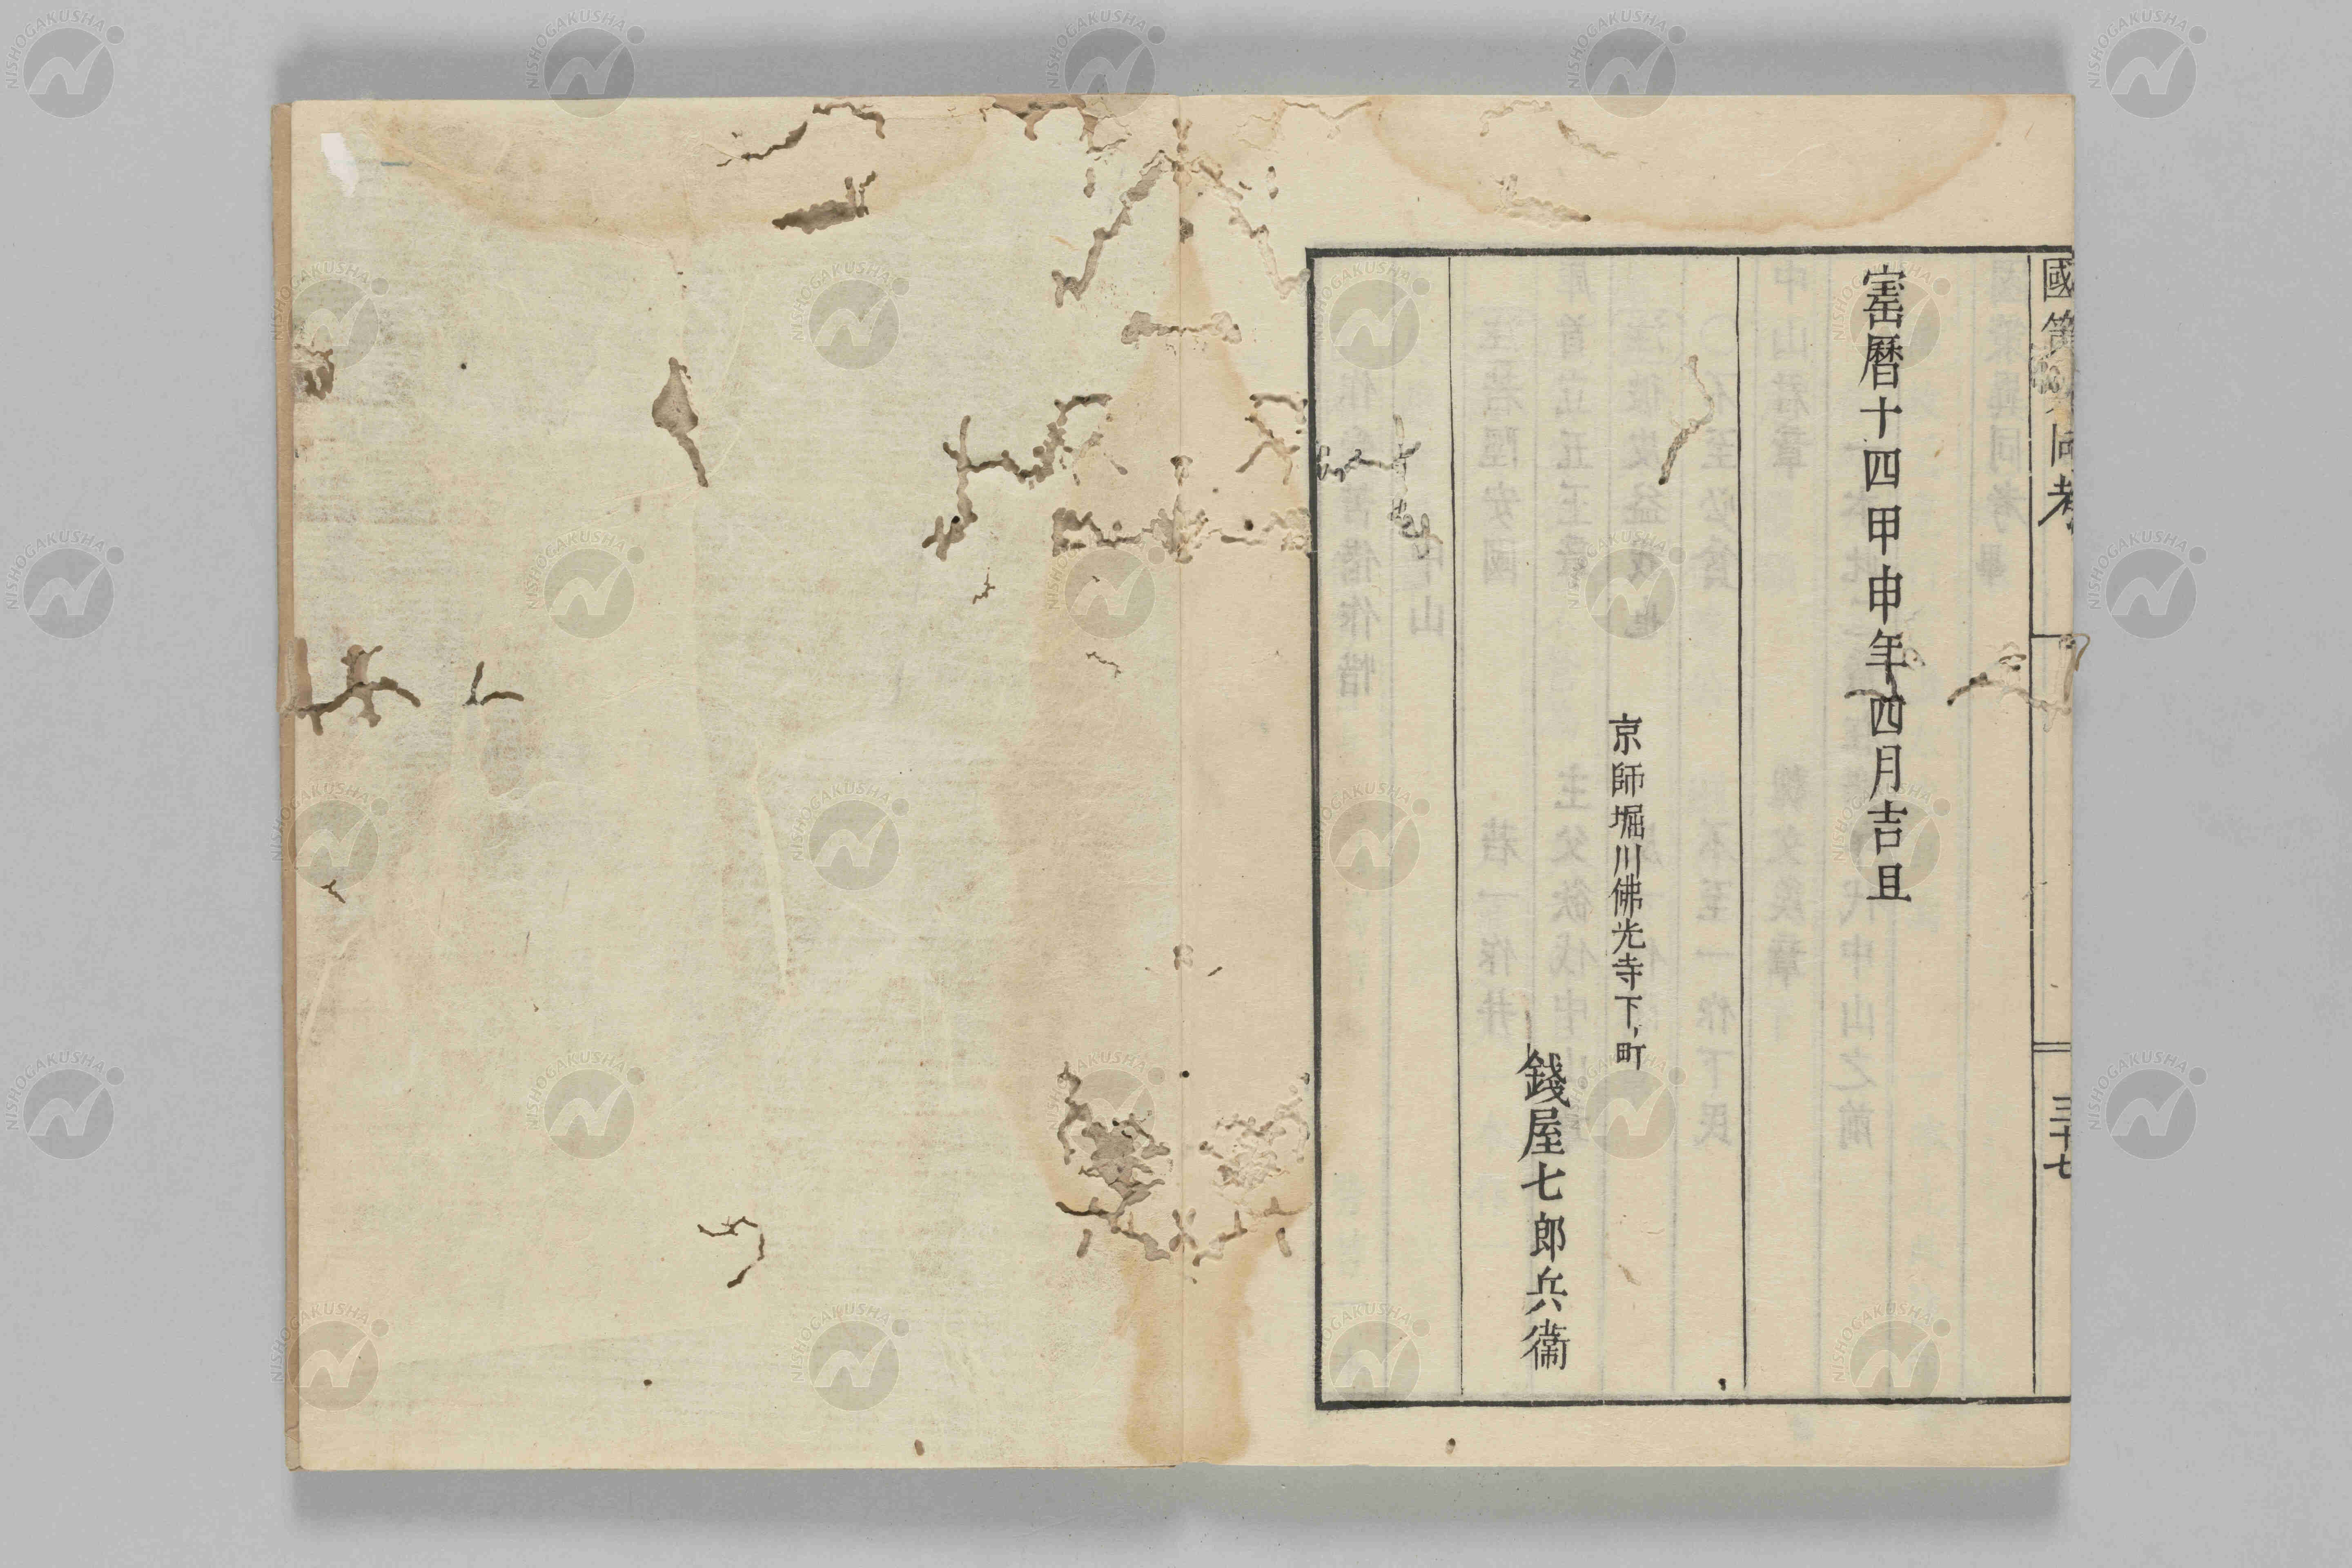 國策異同考
三十七
寚曆十四甲申年四月吉旦
京師堀川佛光寺下ル町
錢屋七郎兵衞
NISHOGAKUSHA